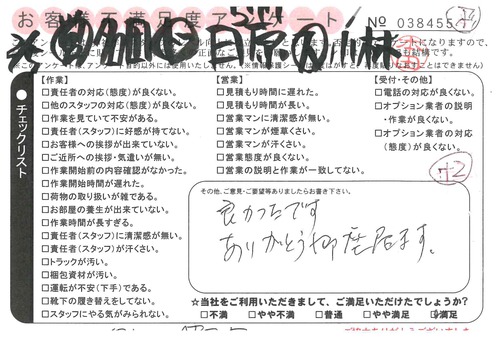 お客様不満足度アンケート
№ 038455
チェックリスト
【作業】
□責任者の対応(態度)が良くない。
□他のスタッフの対応(態度)が良くない。
□作業を見ていて不安がある。
□責任者(スタッフ)に好感が持てない。
□お客様への挨拶が出来ていない。
□ご近所への挨拶・気遣いが無い。
□作業開始前の内容確認がなかった。
□作業開始時間が遅れた。
□荷物の取り扱いが雑である。
□お部屋の養生が出来ていない。
□作業時間が長すぎる。
□責任者(スタッフ)に清潔感が無い。
□責任者(スタッフ)が汗くさい。
□トラックが汚い。
□梱包資材が汚い。
□運転が不安(下手)である。
□靴下の履き替えをしてない。
□スタッフにやる気がみられない。
【営業】
□見積もり時間に遅れた。
□見積もり時間が長い。
□営業マンに清潔感が無い。
□営業マンが煙草くさい。
□営業マンが汗くさい。
□営業態度が良くない。
□営業の説明と作業が一致してない。
【受付・その他】
□電話の対応が良くない。
□オプション業者の説明
・作業が良くない。
□オプション業者の対応
(態度)が良くない。
+2
その他、ご意見・ご要望等ありましたらお書き下さい。
良かったです
ありがとう御座居ます。
☆当社をご利用いただきまして、ご満足いただけたでしょうか?
□不満 □やや不満 □普通 □やや満足 □満足